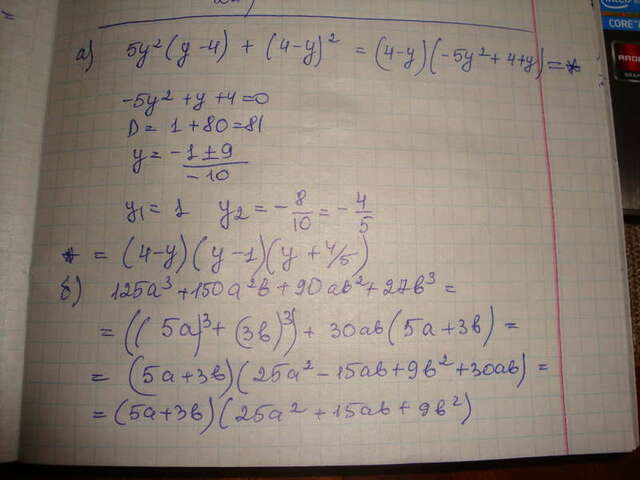 а) 5y²(y-4) + (4-y)² = (4-y)(-5y²+4+y)=*
-5y²+y+4=0
D= 1+80=81
y= -1±9/-10
y₁= 1 y₂= -8/10 = -4/5
* = (4-y)(y-1)(y+4/5)
б) 125a³+150a²b+90ab²+27b³=
=((5a)³+(3b)³)+ 30ab(5a+3b)=
= (5a+3b)(25a²-15ab+9b²+30ab)=
=(5a+3b)(25a²+15ab+9b²)
CORE